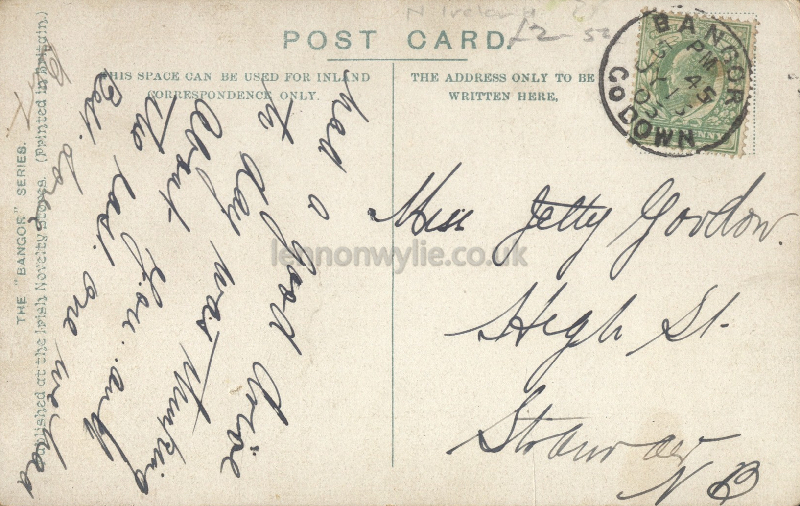 N Ireland
£2-50
POST CARD.
THIS SPACE CAN BE USED FOR INLAND
CORRESPONDENCE ONLY.
THE ADDRESS ONLY TO BE
WRITTEN HERE,
BANGOR
PM 45
CO DOWN
PENNY
had a good drive
to day was thinking
about you and
the last one we had
Miss Jetty Gordon.
High St.
Stranraer
N B
lennonwylie.co.uk
THE "BANGOR" SERIES.
Published at the Irish Novelty Stores. (Printed in Britain.)